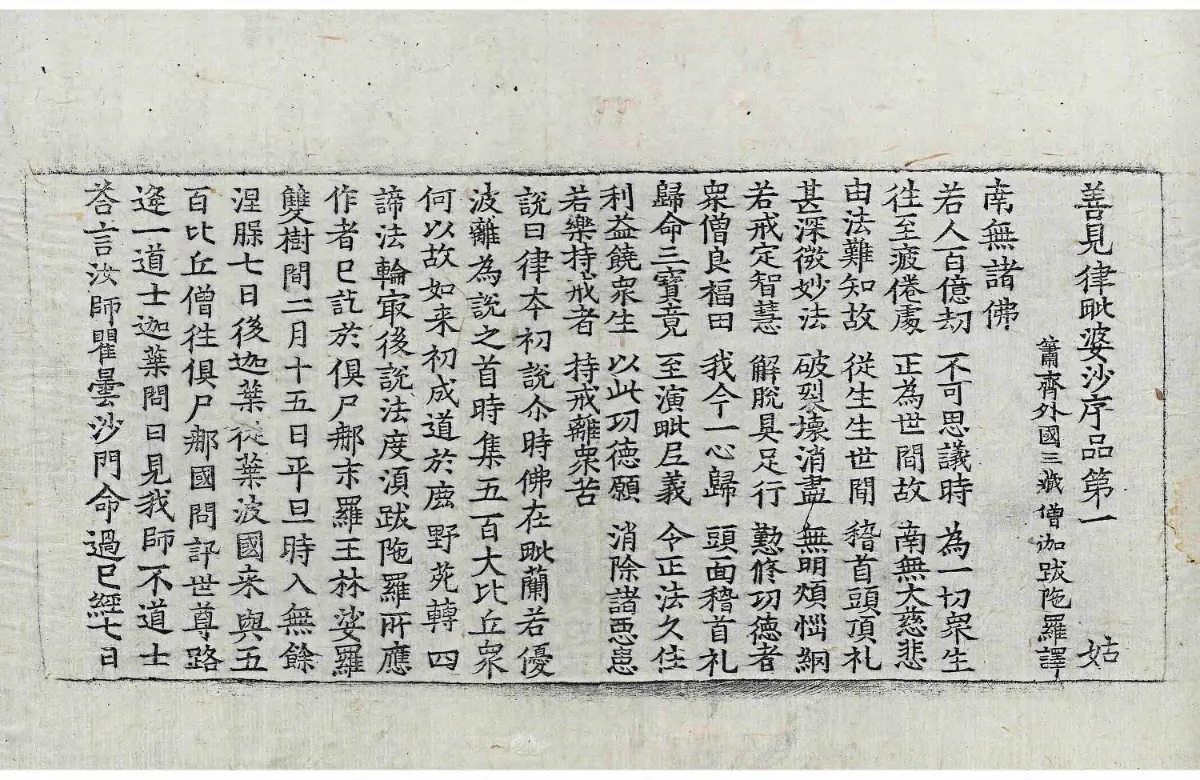 善見律毗婆沙序品第一 姑
簫齊外國三藏僧伽跋陁羅譯
南無諸佛
若人百億劫 不可思議時 為一切衆生
徃至疲倦處 正為世間故 南無大慈悲
由法難知故 從生生世間 稽首頭頂礼
甚深微妙法 破裂壞消盡 無明煩惱網
若戒定智慧 解脫具足行 懃修功德者
衆僧良福田 我今一心歸 頭面稽首礼
歸命三寶竟 至演毗尼義 令正法久住
利益饒衆生 以此功德願 消除諸惡患
若樂持戒者 持戒離衆苦
說曰律本初說尒時佛在毗蘭若優
波離為說之首時集五百大比丘衆
何以故如来初成道於鹿野苑轉四
諦法輪冣後說法度湏跋陁羅所應
作者已訖於俱尸郍末羅王林娑羅
雙樹間二月十五日平旦時入無餘
涅脲七日後迦葉從葉波國来與五
百比丘僧徃俱尸郍國問訊世尊路
逢一道士迦葉問曰見我師不道士
荅言汝師瞿曇沙門命過已經七日